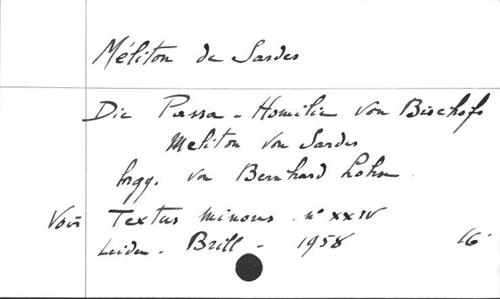 Méliton de Sardes
Die Passa-Homilie von Bischofs
Meliton von Sardes
hrgg. von Bernhard Lohse
Voir Textus minores n° XXIV
Leiden - Brill - 1958 16°